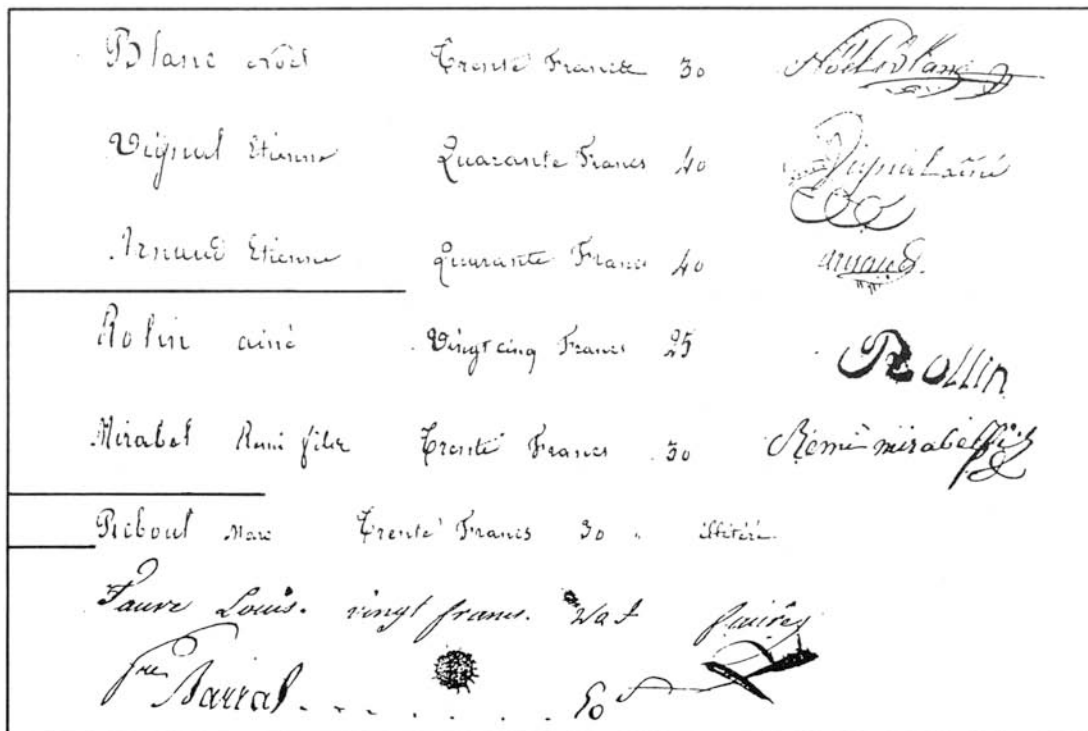 Blanc Noël Trente Francs 30 Noël Blanc
Vignal Etienne Quarante Francs 40 Vignal ainé
Arnaud Etienne Quarante Francs 40 arnaud.
Robin ainé Vingt cinq Francs 25 Rollin
Mirabel Remi fils Trente Francs 30 Rémi mirabel fils
Reboul Marc Trente Francs 30 " illétéré.
Faure Louis. vingt francs. 20 f faure
Barral